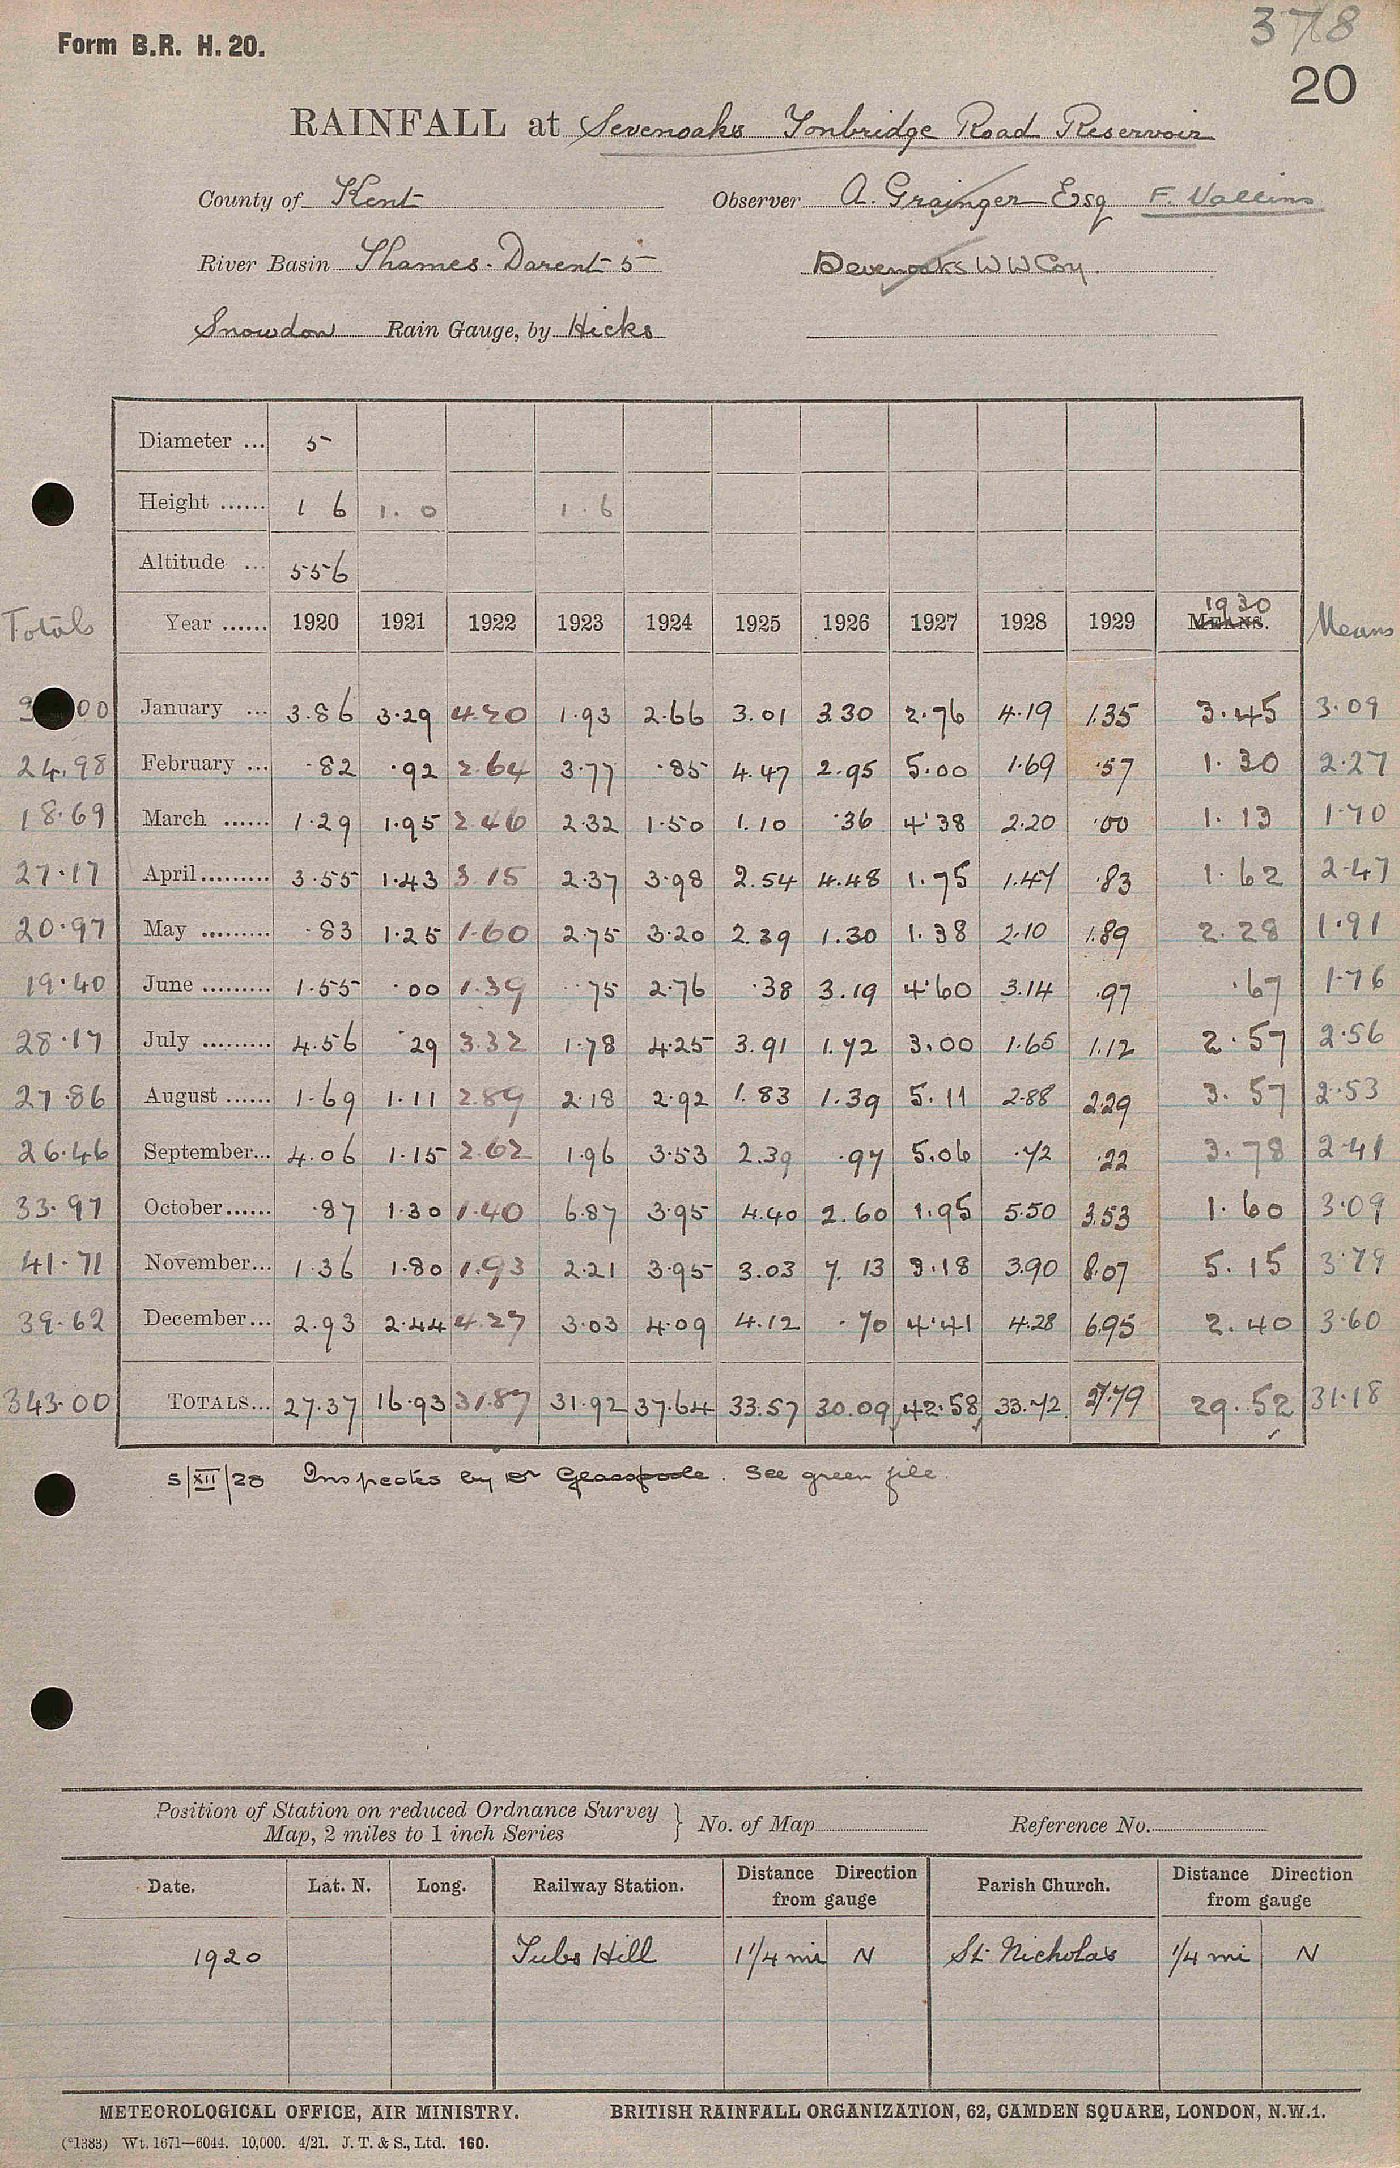 378
Form B.R. H. 20.
20
RAINFALL at Sevenoaks Tonbridge Road Reservoir
County of Kent Observer A. Grainger Esq F. Vallins
River Basin Thames - Darent 5 Sevenoaks W W Coy.
Snowdon Rain Gauge, by Hicks
Diameter ... 5
Height ...... 1 6 1. 0 1. 6
Altitude ... 556
1930
Totals Year ...... 1920 1921 1922 1923 1924 1925 1926 1927 1928 1929 MEANS. Means
00 January ... 3.86 3.29 4.20 1.93 2.66 3.01 3.30 2.76 4.19 1.35 3.45 3.09
24.98 February ... .82 .92 2.64 3.77 .85 4.47 2.95 5.00 1.69 .57 1.30 2.27
18.69 March ...... 1.29 1.95 2.46 2.32 1.50 1.10 .36 4.38 2.20 .00 1.13 1.70
27.17 April......... 3.55 1.43 3.15 2.37 3.98 2.54 4.48 1.75 1.47 .83 1.62 2.47
20.97 May ......... .83 1.25 1.60 2.75 3.20 2.39 1.30 1.38 2.10 1.89 2.28 1.91
19.40 June ......... 1.55 .00 1.39 .75 2.76 .38 3.19 4.60 3.14 .97 .67 1.76
28.17 July ......... 4.56 .29 3.32 1.78 4.25 3.91 1.72 3.00 1.65 1.12 2.57 2.56
27.86 August ...... 1.69 1.11 2.89 2.18 2.92 1.83 1.39 5.11 2.88 2.29 3.57 2.53
26.46 September... 4.06 1.15 2.62 1.96 3.53 2.39 .97 5.06 .72 .22 3.78 2.41
33.97 October...... .87 1.30 1.40 6.87 3.95 4.40 2.60 1.95 5.50 3.53 1.60 3.09
41.71 November... 1.36 1.80 1.93 2.21 3.95 3.03 7.13 3.18 3.90 8.07 5.15 3.79
39.62 December... 2.93 2.44 4.27 3.03 4.09 4.12 .70 4.41 4.28 6.95 2.40 3.60
343.00 TOTALS... 27.37 16.93 31.87 31.92 37.64 33.57 30.09 42.58 33.72 27.79 29.52 31.18
5/XII/28 Inspected by Dr Glasspoole. See green file.
Position of Station on reduced Ordnance Survey
Map, 2 miles to 1 inch Series } No. of Map Reference No.
Date. Lat. N. Long. Railway Station. Distance Direction from gauge Parish Church. Distance Direction from gauge
1920 Tubs Hill 1 1/4 mi N St Nicholas 1/4 mi N
METEOROLOGICAL OFFICE, AIR MINISTRY. BRITISH RAINFALL ORGANIZATION, 62, CAMDEN SQUARE, LONDON, N.W.1.
(*1383) Wt. 1671—6044. 10,000. 4/21. J. T. & S., Ltd. 160.